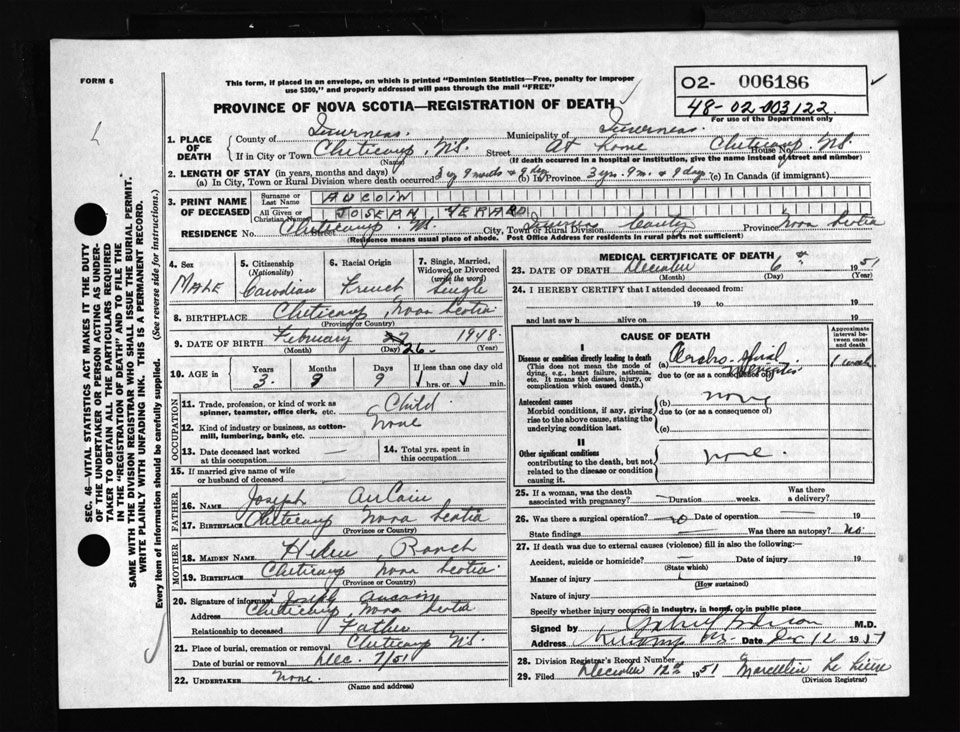 FORM 6
This form, if placed in an envelope, on which is printed "Dominion Statistics—Free, penalty for improper
use $300," and properly addressed will pass through the mail "FREE"
02- 006186
48-02-003122
For use of the Department only
PROVINCE OF NOVA SCOTIA—REGISTRATION OF DEATH
1. PLACE OF DEATH County of Inverness. Municipality of Inverness.
If in City or Town Cheticamp, N.S. (Name) Street At home House No. Cheticamp, N.S.
(If death occurred in a hospital or institution, give the name instead of street and number)
2. LENGTH OF STAY (in years, months and days)
(a) In City, Town or Rural Division where death occurred 3 yrs 9 months & 9 days (b) In Province 3 yrs. 9 m. & 9 days (c) In Canada (if immigrant)
3. PRINT NAME OF DECEASED Surname or Last Name AUCOIN
All Given or Christian Names JOSEPH GERARD
RESIDENCE No. Street Cheticamp, N.S. City, Town or Rural Division Inverness County Province Nova Scotia
(Residence means usual place of abode. Post Office Address for residents in rural parts not sufficient)
4. Sex MALE
5. Citizenship (Nationality) Canadian
6. Racial Origin French
7. Single, Married, Widowed or Divorced (write the word) Single
8. BIRTHPLACE Cheticamp, Nova Scotia
(Province or Country)
9. DATE OF BIRTH February (Month) 26 (Day) 1948 (Year)
10. AGE in Years 3 Months 9 Days 9 If less than one day old hrs. or min.
OCCUPATION
11. Trade, profession, or kind of work as spinner, teamster, office clerk, etc. Child
12. Kind of industry or business, as cotton-mill, lumbering, bank, etc. None
13. Date deceased last worked at this occupation —
14. Total yrs. spent in this occupation
15. If married give name of wife or husband of deceased
FATHER
16. NAME Joseph AuCoin
17. BIRTHPLACE Cheticamp Nova Scotia
(Province or Country)
MOTHER
18. MAIDEN NAME Helen Roach
19. BIRTHPLACE Cheticamp Nova Scotia
(Province or Country)
20. Signature of informant Joseph Aucoin
Address Cheticamp, Nova Scotia
Relationship to deceased Father
21. Place of burial, cremation or removal Cheticamp N.S.
Date of burial or removal Dec. 7/51
22. UNDERTAKER None.
(Name and address)
MEDICAL CERTIFICATE OF DEATH
23. DATE OF DEATH December (Month) 6th (Day) 1951 (Year)
24. I HEREBY CERTIFY that I attended deceased from:
19 to 19
and last saw h alive on 19
CAUSE OF DEATH
Approximate interval between onset and death
I
Disease or condition directly leading to death
(This does not mean the mode of dying, e.g., heart failure, asthenia, etc. It means the disease, injury, or complication which caused death.)
(a) Cerebro-spinal Meningitis 1 week
due to (or as a consequence of)
Antecedent causes
Morbid conditions, if any, giving rise to the above cause, stating the underlying condition last.
(b) none
due to (or as a consequence of)
(c)
II
Other significant conditions
contributing to the death, but not related to the disease or condition causing it.
none.
25. If a woman, was the death associated with pregnancy? — Duration weeks. Was there a delivery?
26. Was there a surgical operation? no Date of operation — 19
State findings — Was there an autopsy? No.
27. If death was due to external causes (violence) fill in also the following:—
Accident, suicide or homicide? (State which) Date of injury 19
Manner of injury (How sustained)
Nature of injury
Specify whether injury occurred in industry, in home, or in public place
Signed by M.D.
Address Date Dec 12 1951
28. Division Registrar's Record Number
29. Filed December 12th 1951 Marcellin
(Division Registrar)
SEC. 46—VITAL STATISTICS ACT MAKES IT THE DUTY
OF THE UNDERTAKER OR PERSON ACTING AS UNDER-
TAKER TO OBTAIN ALL THE PARTICULARS REQUIRED
IN THE "REGISTRATION OF DEATH" AND TO FILE THE
SAME WITH THE DIVISION REGISTRAR WHO SHALL ISSUE THE BURIAL PERMIT.
WRITE PLAINLY WITH UNFADING INK. THIS IS A PERMANENT RECORD.
Every item of information should be carefully supplied. (See reverse side for instructions.)